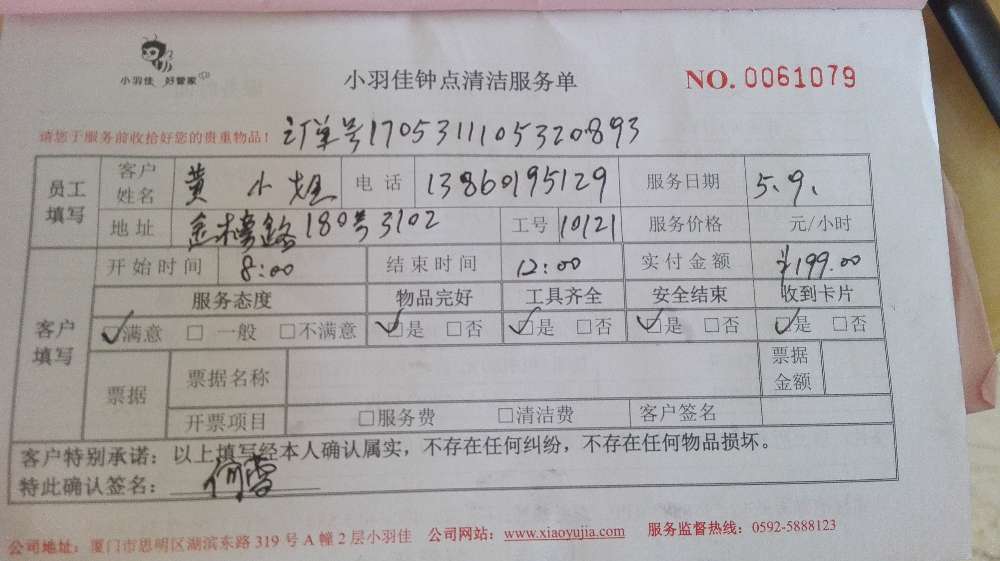 小羽佳 好管家
小羽佳钟点清洁服务单
NO. 0061079
请您于服务前收拾好您的贵重物品！ 订单号1705311105320893
员工填写 客户姓名 黄小姐 电话 13860195129 服务日期 5.9.
地址 金榜路180号3102 工号 10121 服务价格 元/小时
客户填写 开始时间 8:00 结束时间 12:00 实付金额 ¥199.00
服务态度 物品完好 工具齐全 安全结束 收到卡片
☑满意 □一般 □不满意 ☑是 □否 ☑是 □否 ☑是 □否 ☑是 □否
票据 票据名称 票据金额
开票项目 □服务费 □清洁费 客户签名
客户特别承诺：以上填写经本人确认属实，不存在任何纠纷，不存在任何物品损坏。
特此确认签名：何雪
公司地址：厦门市思明区湖滨东路 319 号 A 幢 2 层小羽佳 公司网站：www.xiaoyujia.com 服务监督热线：0592-5888123